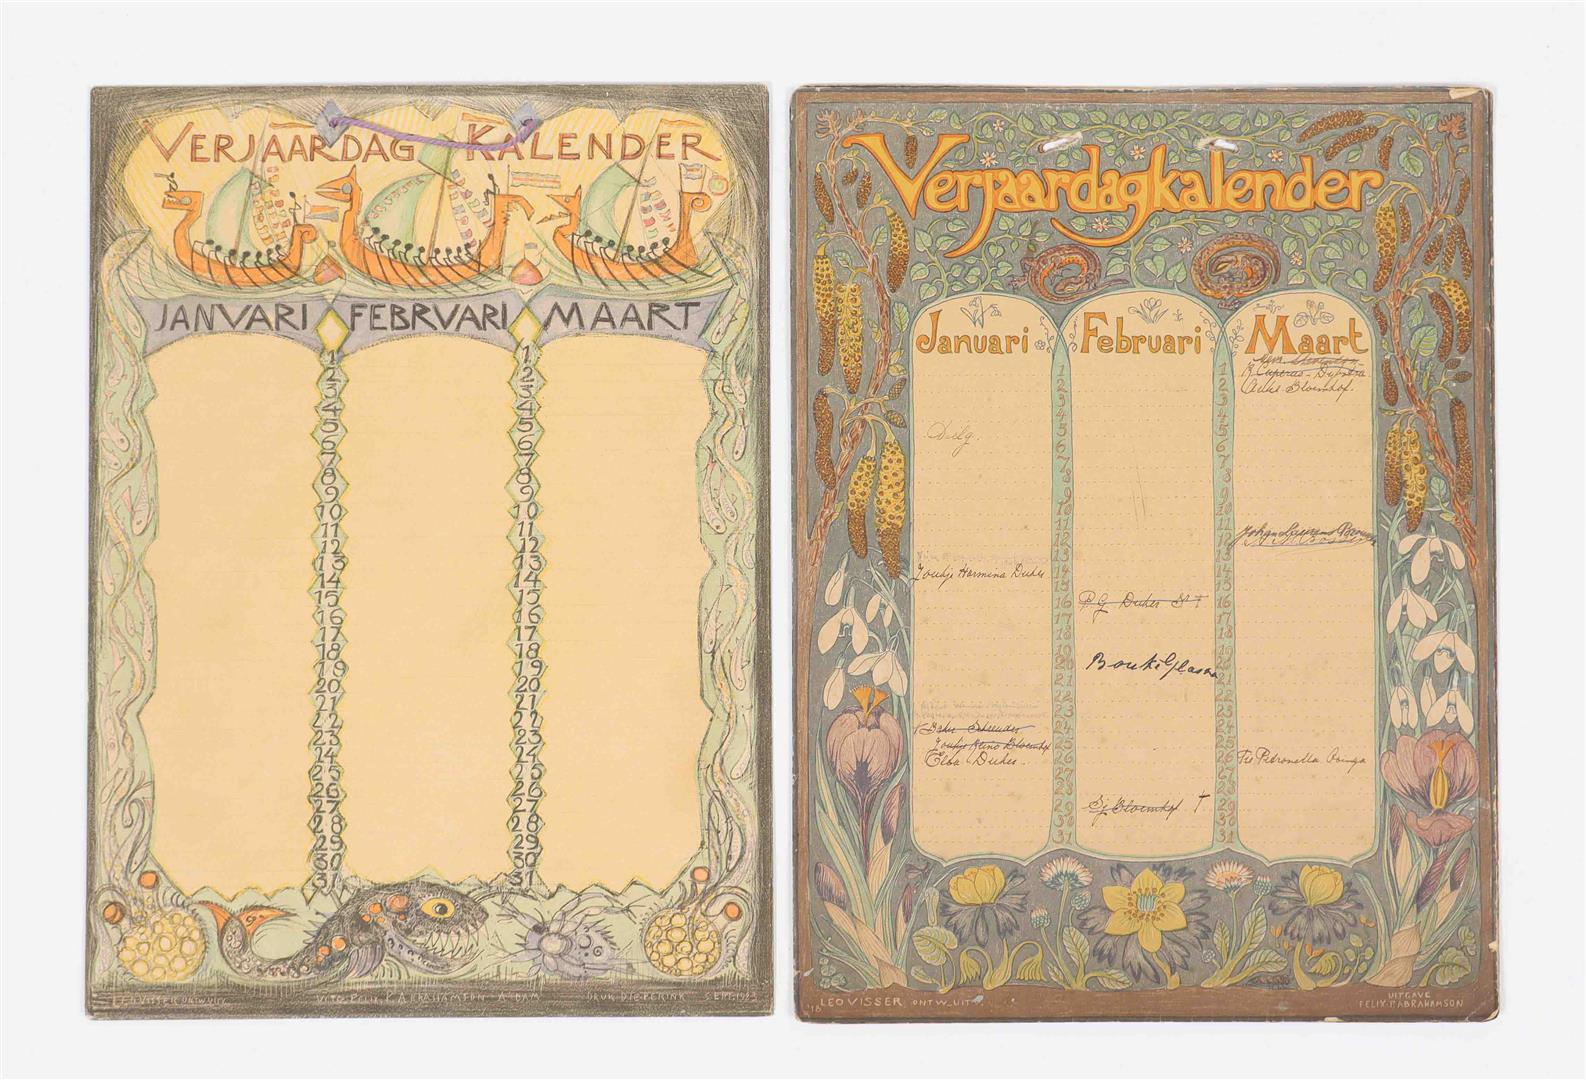 VERJAARDAG KALENDER
JANVARI FEBRVARI MAART
1 1
2 2
3 3
4 4
5 5
6 6
7 7
8 8
9 9
10 10
11 11
12 12
13 13
14 14
15 15
16 16
17 17
18 18
19 19
20 20
21 21
22 22
23 23
24 24
25 25
26 26
27 27
28 28
29 29
30 30
31 31
LEO VISSER ONTW. UITG. FELIX P. ABRAHAMSON A'DAM DRUK DIEPERINK SEPT. 1923
Verjaardagkalender
Januari Februari Maart
1 1
2 2
3 3
4 4
5 5
6 6
7 7
8 8
9 9
10 10
11 11
12 12
13 13
14 14
Dukes
15 15
16 16
P.G. Dukes Sr †
17 17
18 18
19 19
20 20
21 21
22 22
23 23
24 24
25 25
26 26
Elba Dukes
27 27
28 28
29 29
Sj. Bloemhof †
30 30
31 31
'18 LEO VISSER ONTW. UIT
UITGAVE
FELIX P. ABRAHAMSON